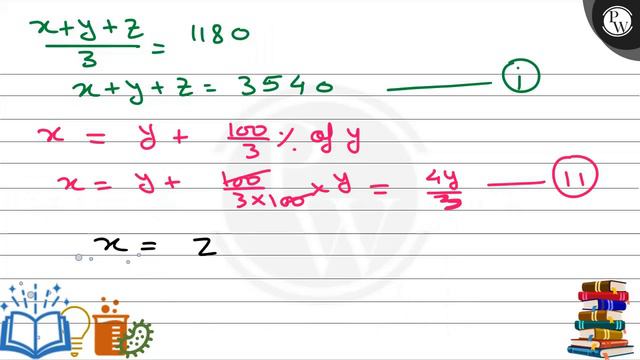 PW
(x+y+z)/3 = 1180
x+y+z = 3540 —— (i)
x = y + 100/3 % of y
x = y + 100/(3×100) × y = 4y/3 —— (11)
x = z